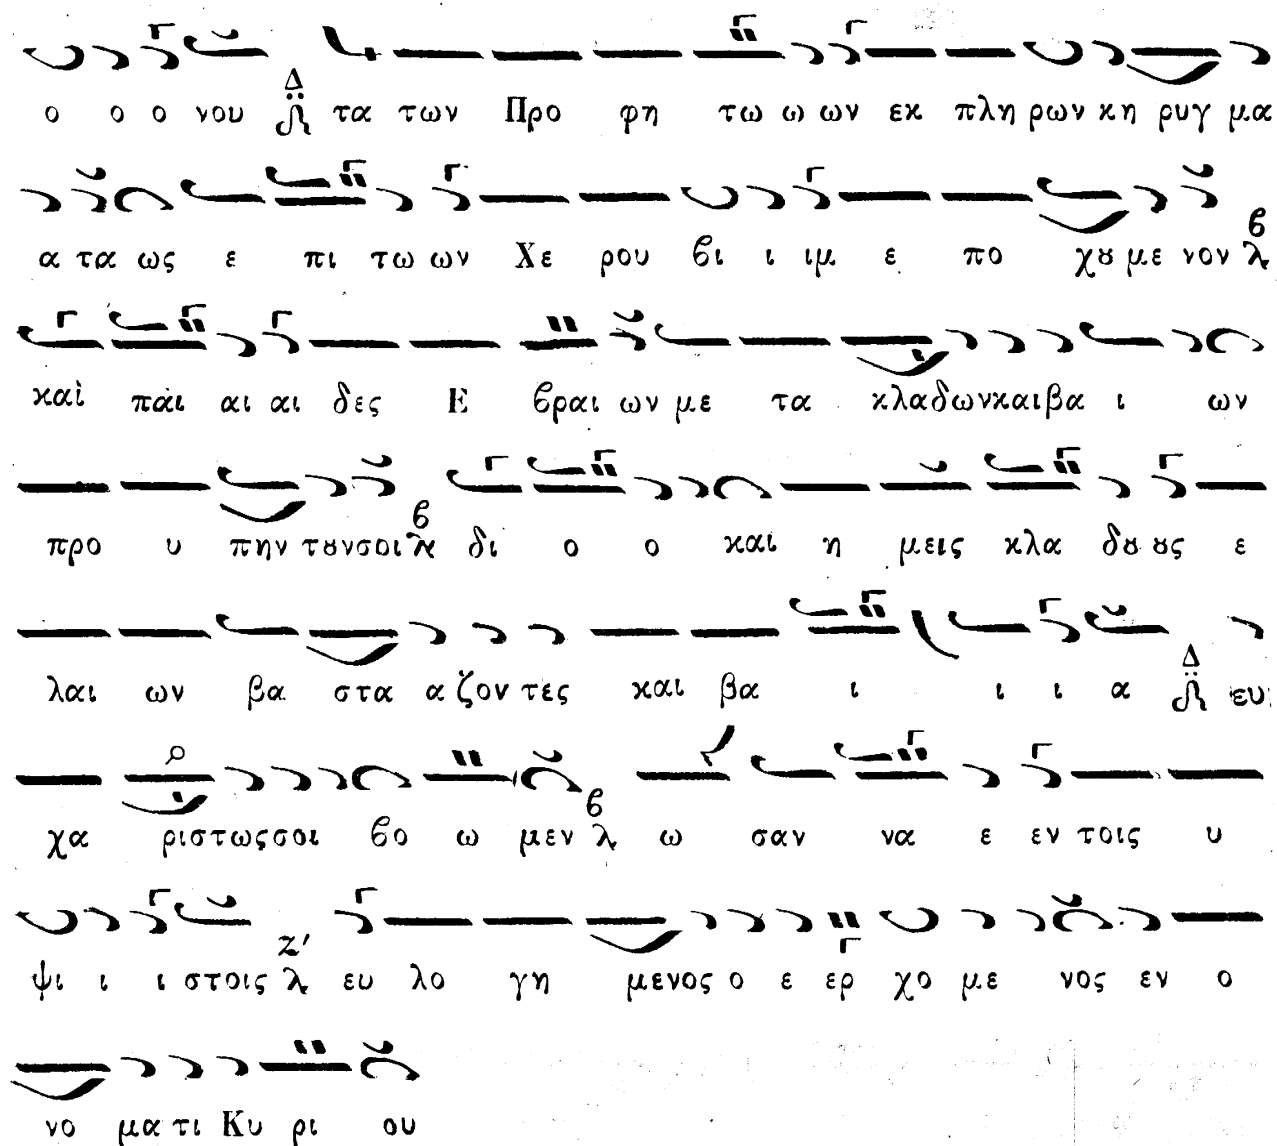 ο ο ο νου Δ τα των Προ φη τω ω ων εκ πλη ρων κη ρυγ μα
α τα ως ε πι τω ων Χε ρου βι ι ιμ ε πο χȣ με νον β
και παι αι αι δες Ε βραι ων με τα κλαδωνκαιβα ι ων
προ υ πην τȣνσοι β δι ο ο και η μεις κλα δȣ ȣς ε
λαι ων βα στα α ζον τες και βα ι ι ι α Δ ευ
χα ριστωςσοι βο ω μεν β ω σαν να ε εν τοις υ
ψι ι ι στοις Ζ' ευ λο γη μενος ο ε ερ χο με νος εν ο
νο μα τι Κυ ρι ου